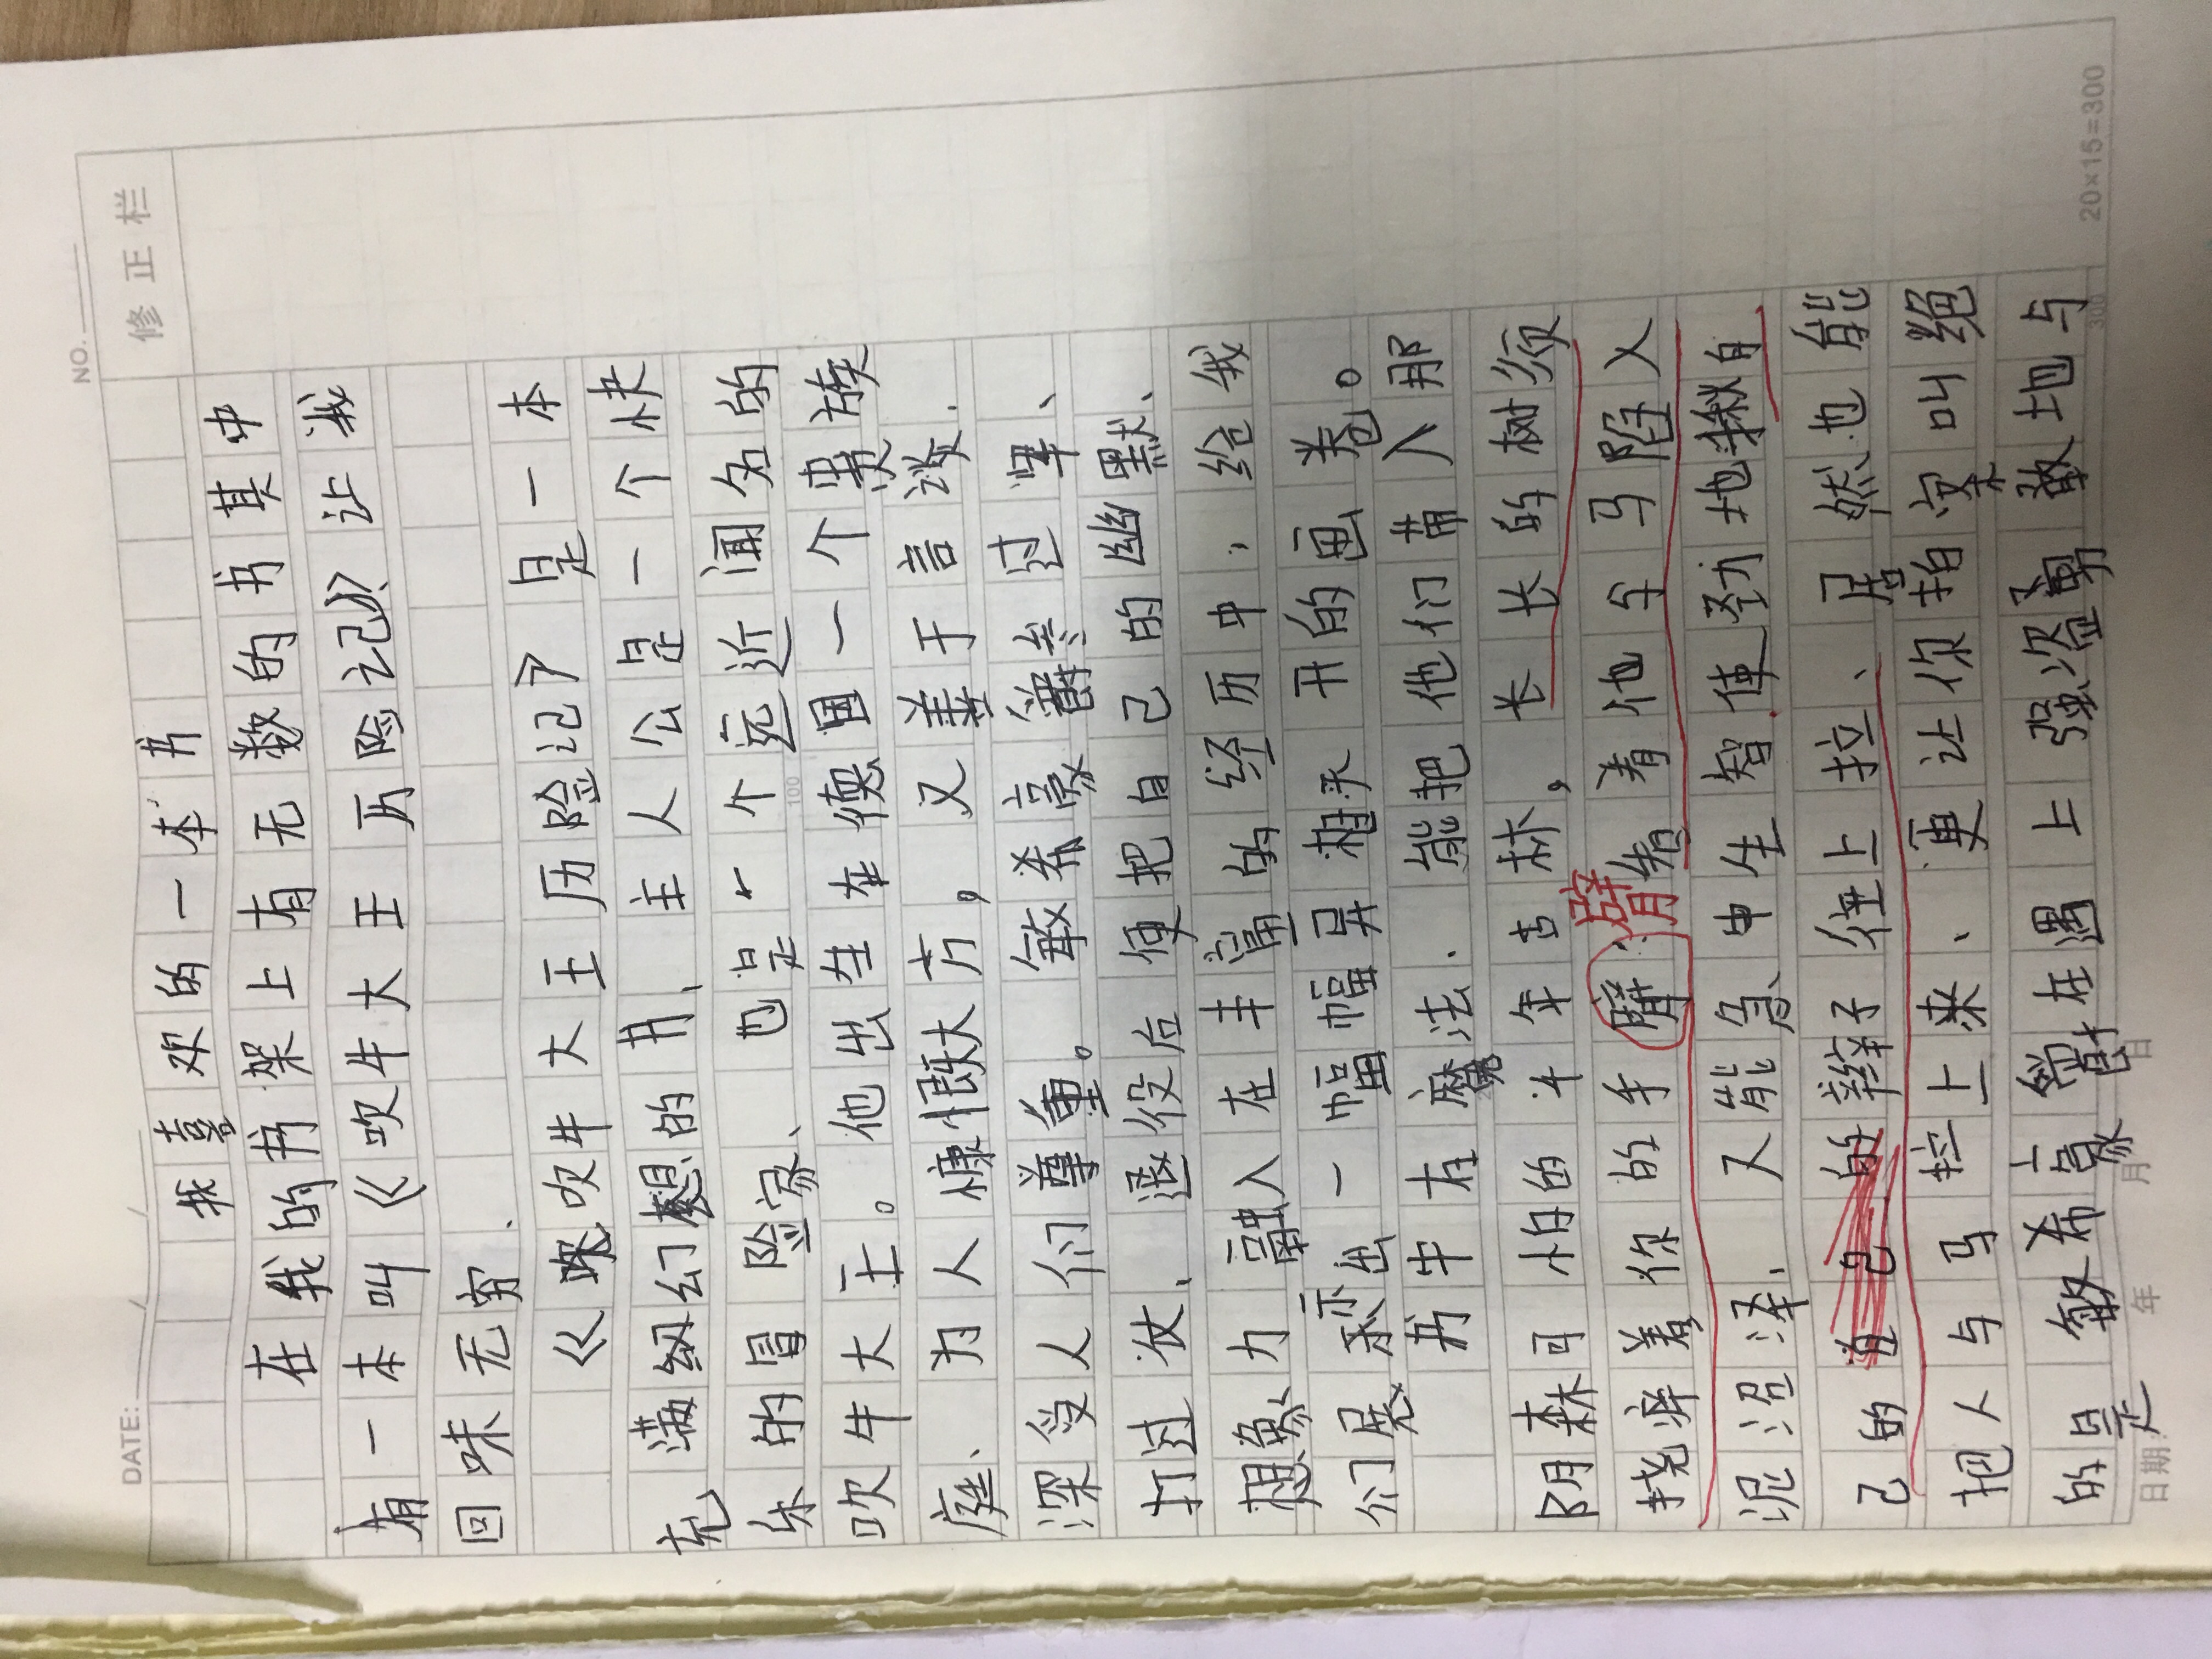 DATE: / /
NO.
修正栏
我喜欢的一本书
在我的书架上有无数的书其中
有一本叫《吹牛大王历险记》让我
回味无穷.
《吹牛大王历险记》是一本
充满幻想的书、主人公是一个快
乐的冒险家、也是一个远近闻名的
吹牛大王。他出生在德国一个贵族
庭、为人慷慨大方,又善于言谈.
深受人们尊重。敏希豪参过军、
打过仗、退役后便把自己的幽默、
想象力融入在丰富的经历中,给我
们展示出一幅幅异想天开的画卷。
书中有魔法.能把他们带入那
阴森可怕的千年古林,长长的树须
挠痒着你的手臂
臂着他与马陷入
泥沼泽、又能急中生智使劲地揪自
己的自己的辫子往上拉、居然也能
把人与马拉上来、更让你拍案叫绝
的是敏希豪在遇上强盗勇敢地与
100
300
20×15=300
日期: 年 月 日